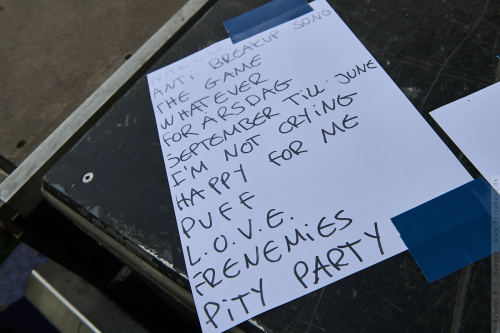 ANTI BREAKUP SONG
THE GAME
WHATEVER
FÖR ÅRSDAG
SEPTEMBER TILL JUNE
I'M NOT CRYING
HAPPY FOR ME
PUFF
L.O.V.E.
FRENEMIES
PiTY PARTY